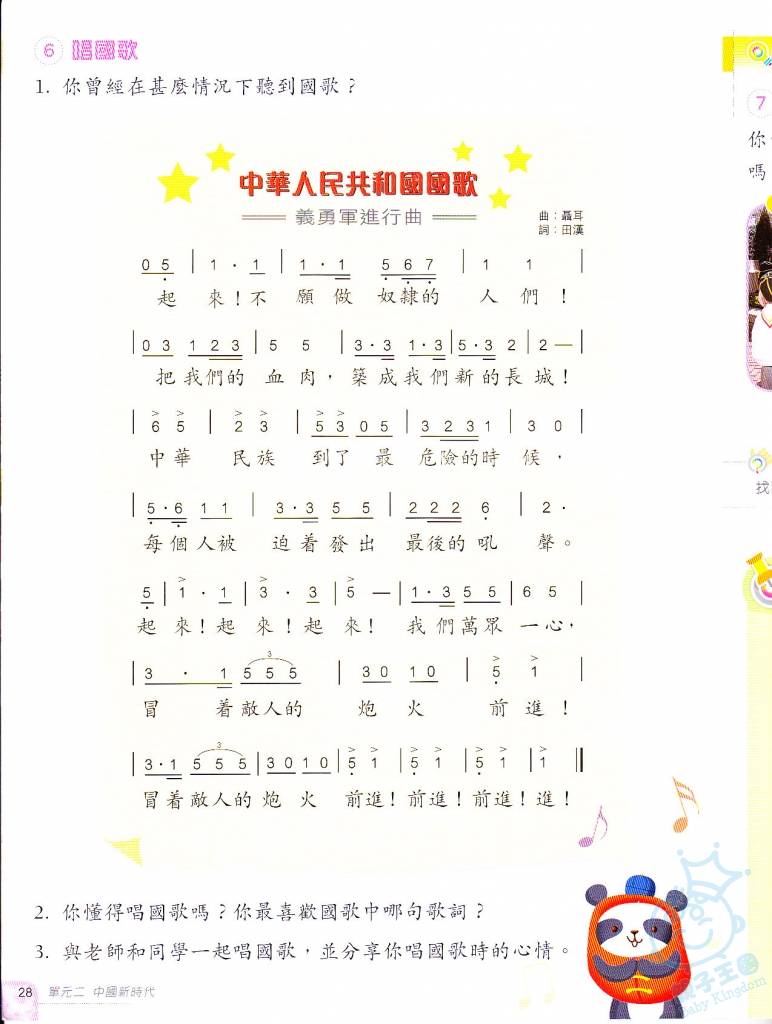 6 唱國歌
1. 你曾經在甚麼情況下聽到國歌？
中華人民共和國國歌
義勇軍進行曲
曲：聶耳
詞：田漢
0 5 | 1 · 1 | 1 · 1 5 6 7 | 1 1 |
起來！不願做奴隸的人們！
| 0 3 1 2 3 | 5 5 | 3 · 3 1 · 3 | 5 · 3 2 | 2 — |
把我們的血肉，築成我們新的長城！
| 6 5 | 2 3 | 5 3 0 5 | 3 2 3 1 | 3 0 |
中華民族到了最危險的時候，
| 5 · 6 1 1 | 3 · 3 5 5 | 2 2 2 6 | 2 · 
每個人被迫着發出最後的吼聲。
5 | 1 · 1 | 3 · 3 | 5 — | 1 · 3 5 5 | 6 5 |
起來！起來！起來！我們萬眾一心，
| 3 · 1 5 5 5 | 3 0 1 0 | 5 1 |
冒着敵人的炮火前進！
| 3 · 1 5 5 5 | 3 0 1 0 | 5 1 | 5 1 | 5 1 | 1 ||
冒着敵人的炮火前進！前進！前進！進！
2. 你懂得唱國歌嗎？你最喜歡國歌中哪句歌詞？
3. 與老師和同學一起唱國歌，並分享你唱國歌時的心情。
28 單元二 中國新時代
7
你
嗎
找
親子王國
Baby Kingdom